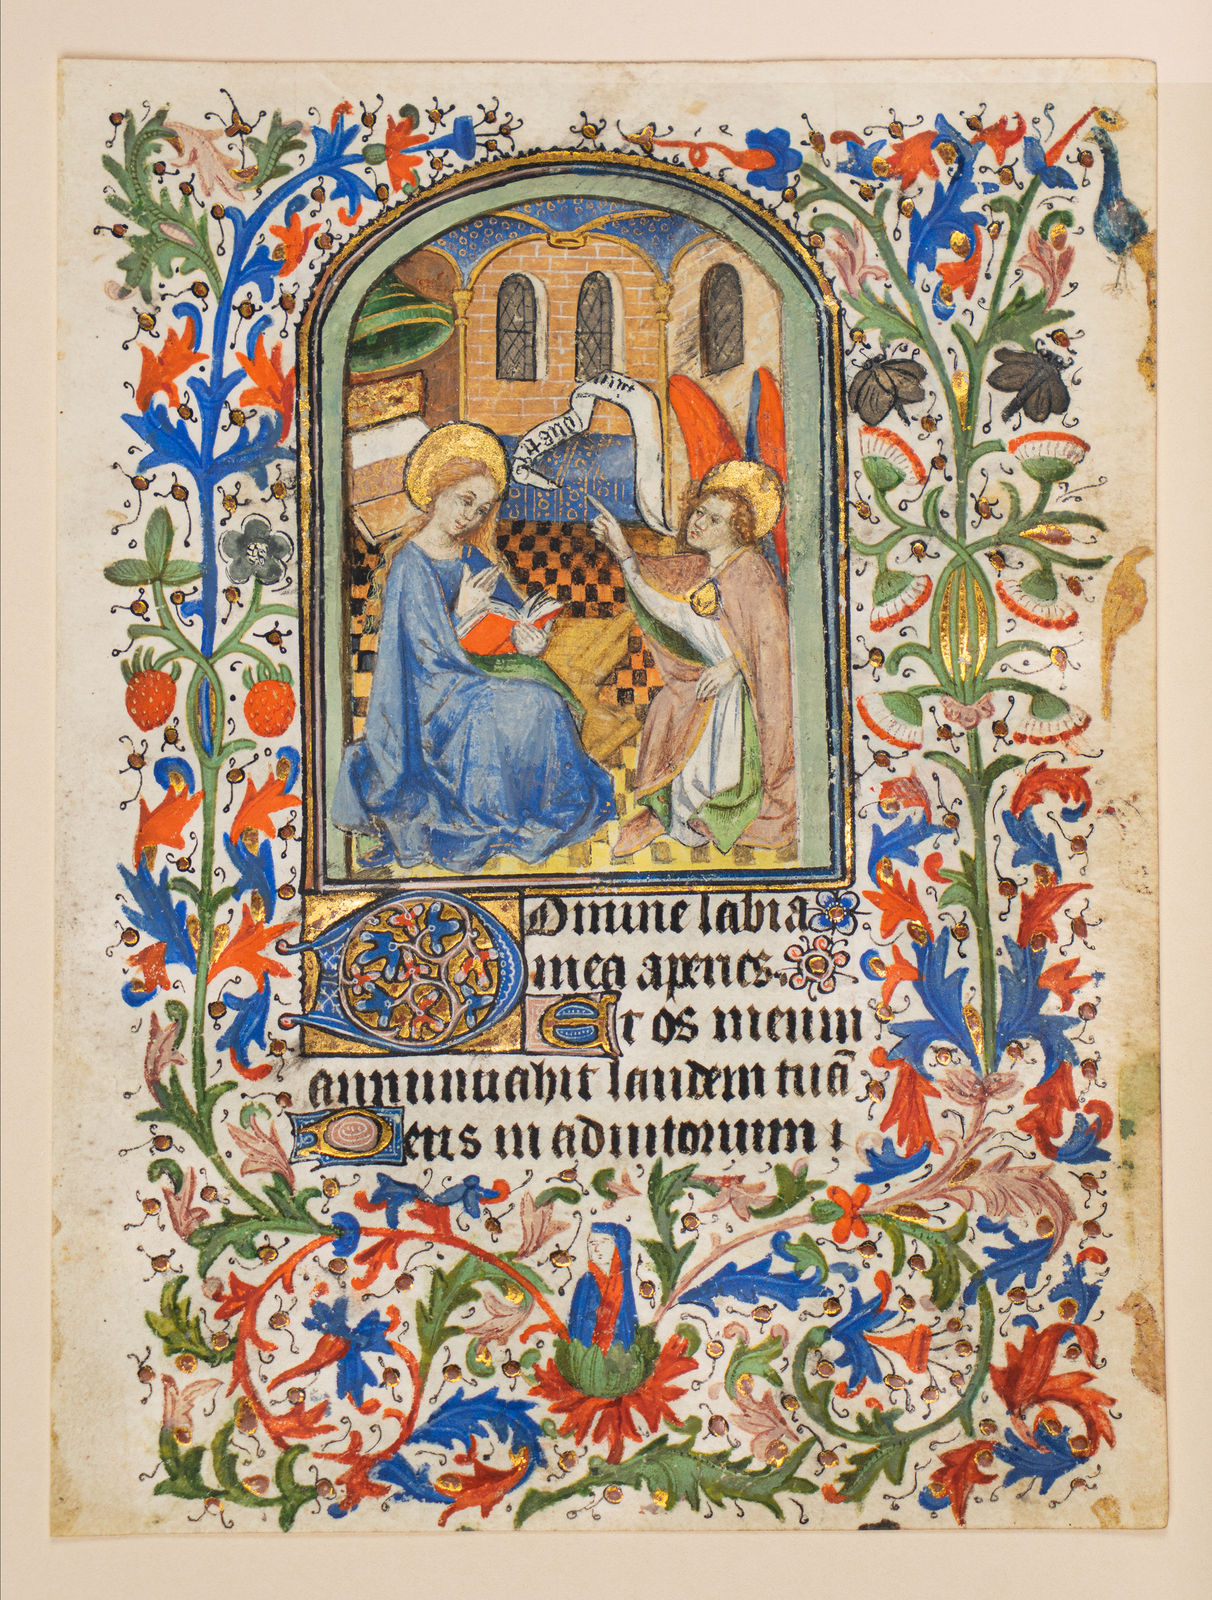 Domine labia
mea aperies.
Et os meum
annuntiabit laudem tuā
Deus in adiutorium